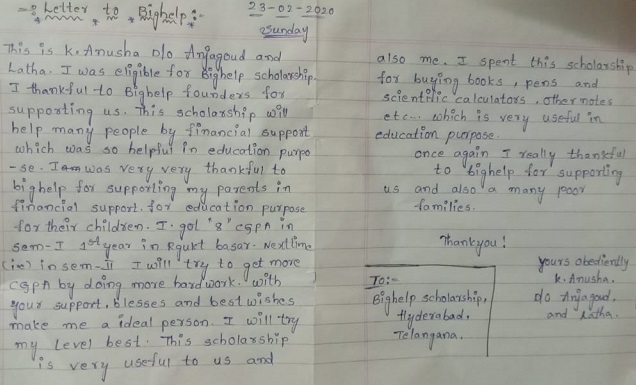 -: Letter to Bighelp :-
23-02-2020
Sunday
This is K. Anusha D/o Anjagoud and
Latha. I was eligible for Bighelp scholarship.
I thankful to Bighelp founders for
supporting us. This scholarship will
help many people by financial support
which was so helpful in education purpo
-se. I am was very very thankful to
bighelp for supporting my parents in
financial support. for education purpose
for their children. I got "8" CGPA in
sem-I 1st year in Rgukt basar. Next time
(ie) in sem-II I will try to get more
CGPA by doing more hardwork. with
your support, blesses and best wishes
make me a ideal person. I will try
my level best. This scholarship
is very useful to us and
also me. I spent this scholarship
for buying books, pens and
scientific calculators, other notes
etc... which is very useful in
education purpose.
once again I really thankful
to bighelp for supporting
us and also a many poor
families.
Thankyou!
yours obediently
K. Anusha.
D/o Anjagoud.
and Latha.
To:-
Bighelp scholarship,
Hyderabad,
Telangana.